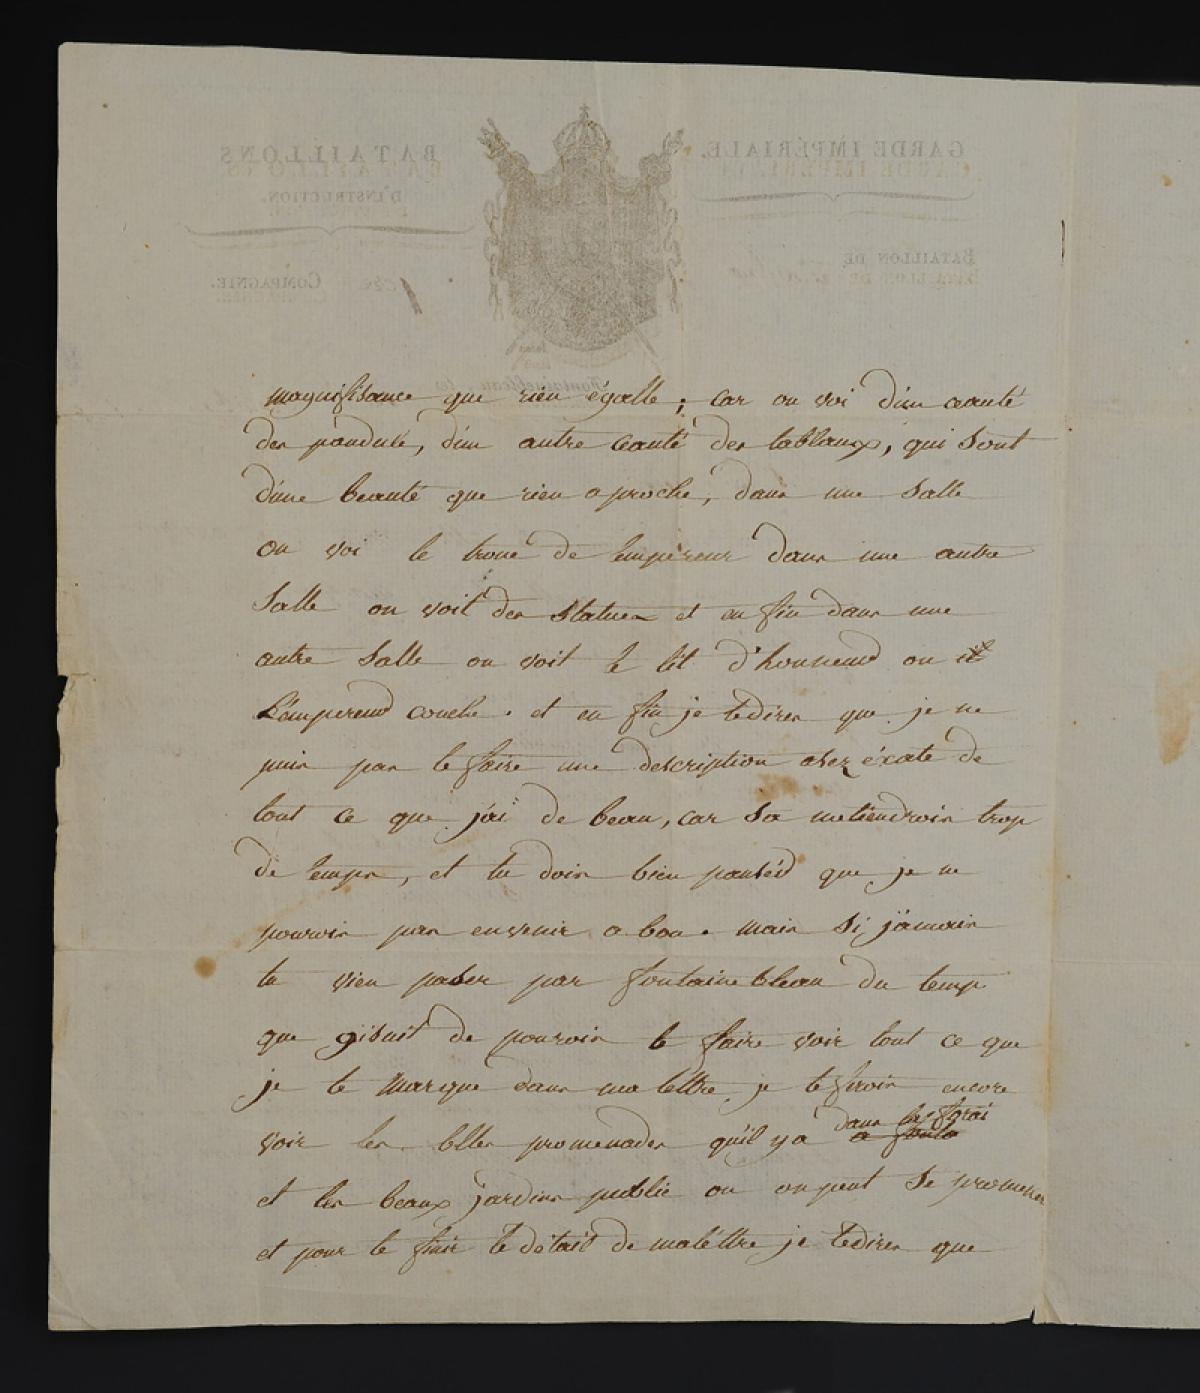 GARDE IMPÉRIALE.
BATAILLONS
D'INSTRUCTION.
BATAILLON DE
COMPAGNIE.
Fontainebleau, les
magnifisance que rien égalle ; car on voi d'un ceauté
des pandule, d'un autre ceauté des tablaux, qui sont
d'une beauté que rien aproche, dans une salle
on voi le trone de l'empereur dans une autre
salle on voit des statues et en fin dans une
autre salle on voit le lit d'honneud ou
L'empereud couche. et en fin je te dires que je ne
puis pas te faire une description asez éxate de
tout ce que j'ai de beau, car sa me tiendrois trop
de temps, et tu dois bien panséd que je ne
pourois pas en venir a bou. mais si jamais
tu vien paser par fontainebleau du temp
que gisuit de pourois te faire voir tout ce que
je te marque dans ma lettre je te ferois encore
voir les belles promenades qu'il y a dans la forai
et les beaux jardins public ou on peut se promener
et pour te finir le détail de ma léttre je te dires que